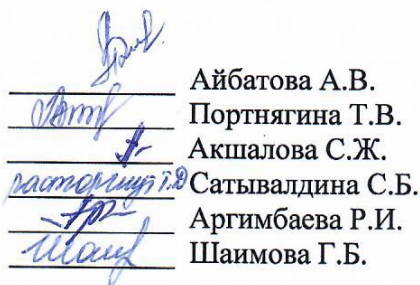 Айбатова А.В.
Портнягина Т.В.
Акшалова С.Ж.
расторгнут ТД Сатывалдина С.Б.
Аргимбаева Р.И.
Шаимова Г.Б.